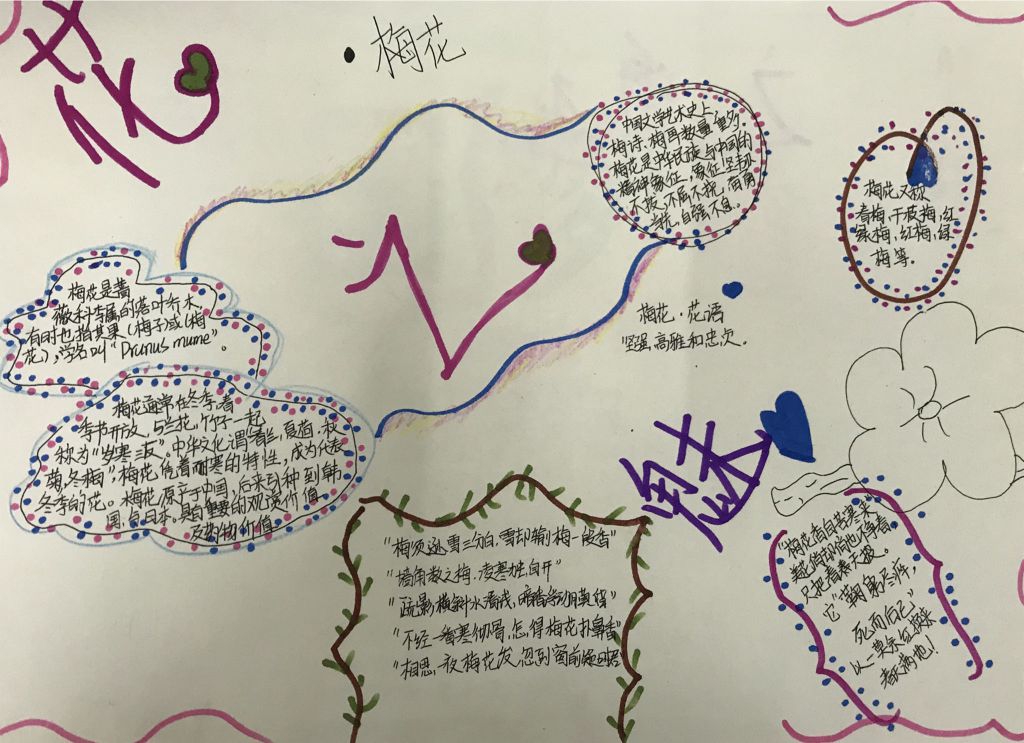 花
梅花
心
中国文学艺术史上,
梅诗、梅画数量更多。
梅花是中华民族与中国的
精神象征,象征坚韧
不拔,不屈不挠,奋勇
当先,自强不息。
梅花又称
春梅,干枝梅,红
绿梅,红梅,绿
梅等。
梅花是蔷
薇科李属的落叶乔木,
有时也指其果(梅子)或(梅
花),学名叫“Prunus mume”。
梅花·花语
坚强,高雅和忠贞。
梅花通常在冬季春
季节开放,与兰花,竹子一起
称为“岁寒三友”。中华文化谓春兰,夏荷,秋
菊,冬梅”,梅花凭着耐寒的特性,成为代表
冬季的花。梅花原产于中国,后来引种到韩
国,与日本。具有重要的观赏价值
及药物价值。
“梅须逊雪三分白,雪却输梅一段香”
“墙角数之梅,凌寒独自开”
“疏影横斜水清浅,暗香浮动月黄昏”
“不经一番寒彻骨,怎得梅花扑鼻香”
“相思一夜梅花发,忽到窗前疑是君”
“梅花香自苦寒来”
美花俏却俏也不争春,
只把春来天报。
它“鞠躬尽瘁,
死而后已”
以一
春天满地!